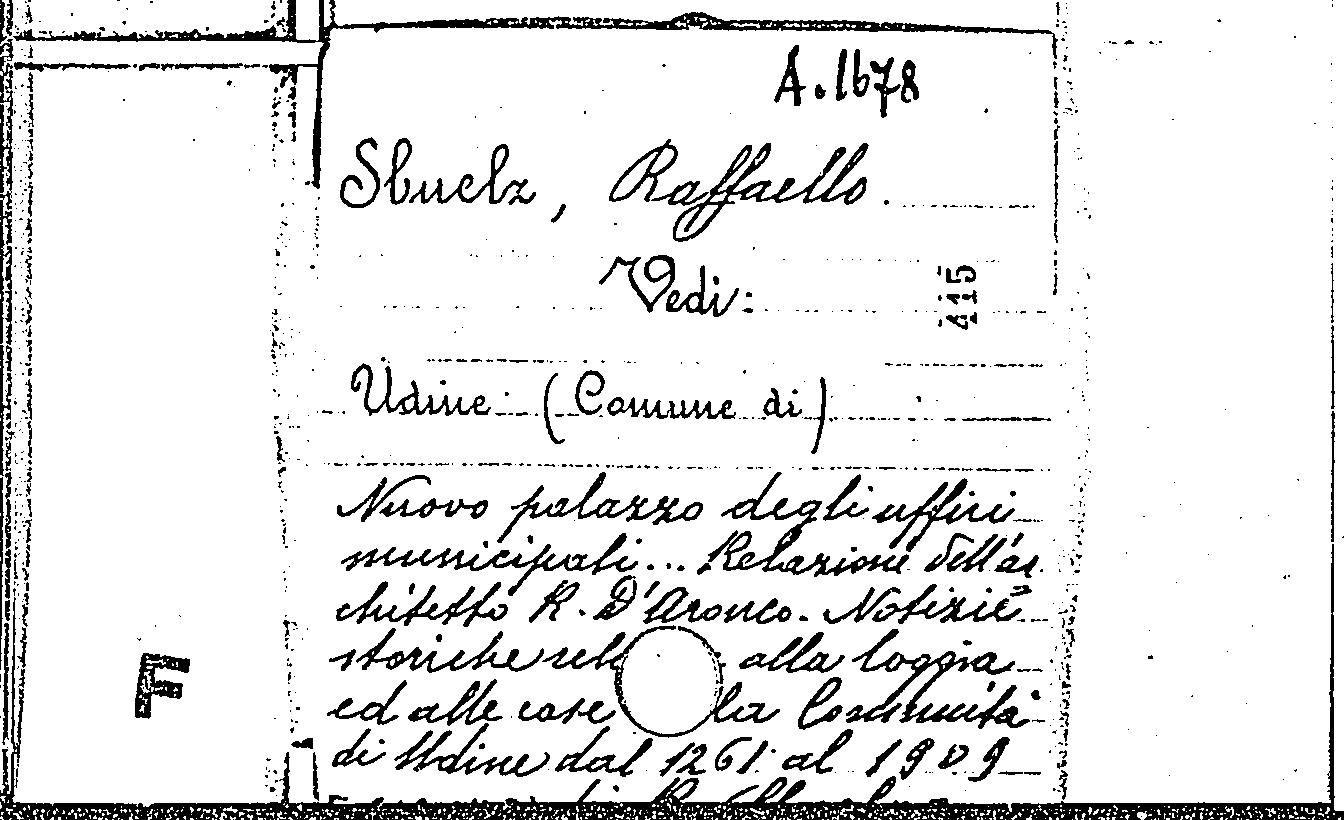 A. 1678
Sbuelz, Raffaello.
Vedi:
415
Udine (Comune di)
Nuovo palazzo degli uffici
municipali... Relazione dell'ar
chitetto R. D'Aronco. Notizie
storiche alla loggia
ed alle case la Comunità
di Udine dal 1261 al 1909
F